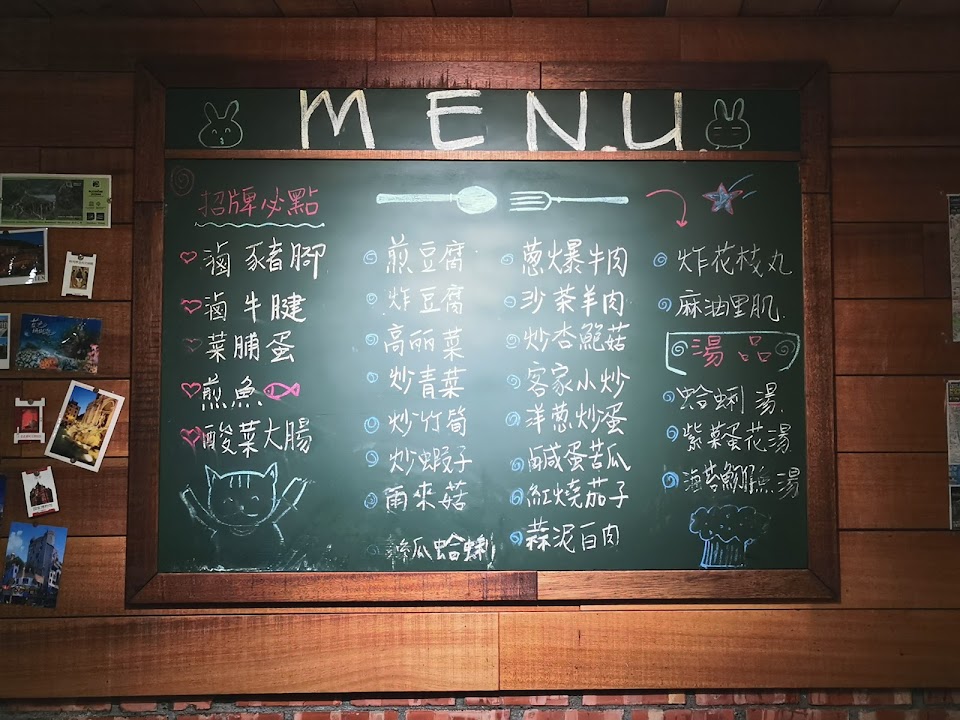 M E N.U.
招牌必點
滷豬腳
滷牛腱
菜脯蛋
煎魚
酸菜大腸
煎豆腐
炸豆腐
高丽菜
炒青菜
炒竹筍
炒蝦子
雨來菇
絲瓜蛤蜊
蔥爆牛肉
沙茶羊肉
炒杏鮑菇
客家小炒
洋蔥炒蛋
鹹蛋苦瓜
紅燒茄子
蒜泥白肉
炸花枝丸
麻油里肌
湯品
蛤蜊湯
紫菜蛋花湯
海苔魩魚湯